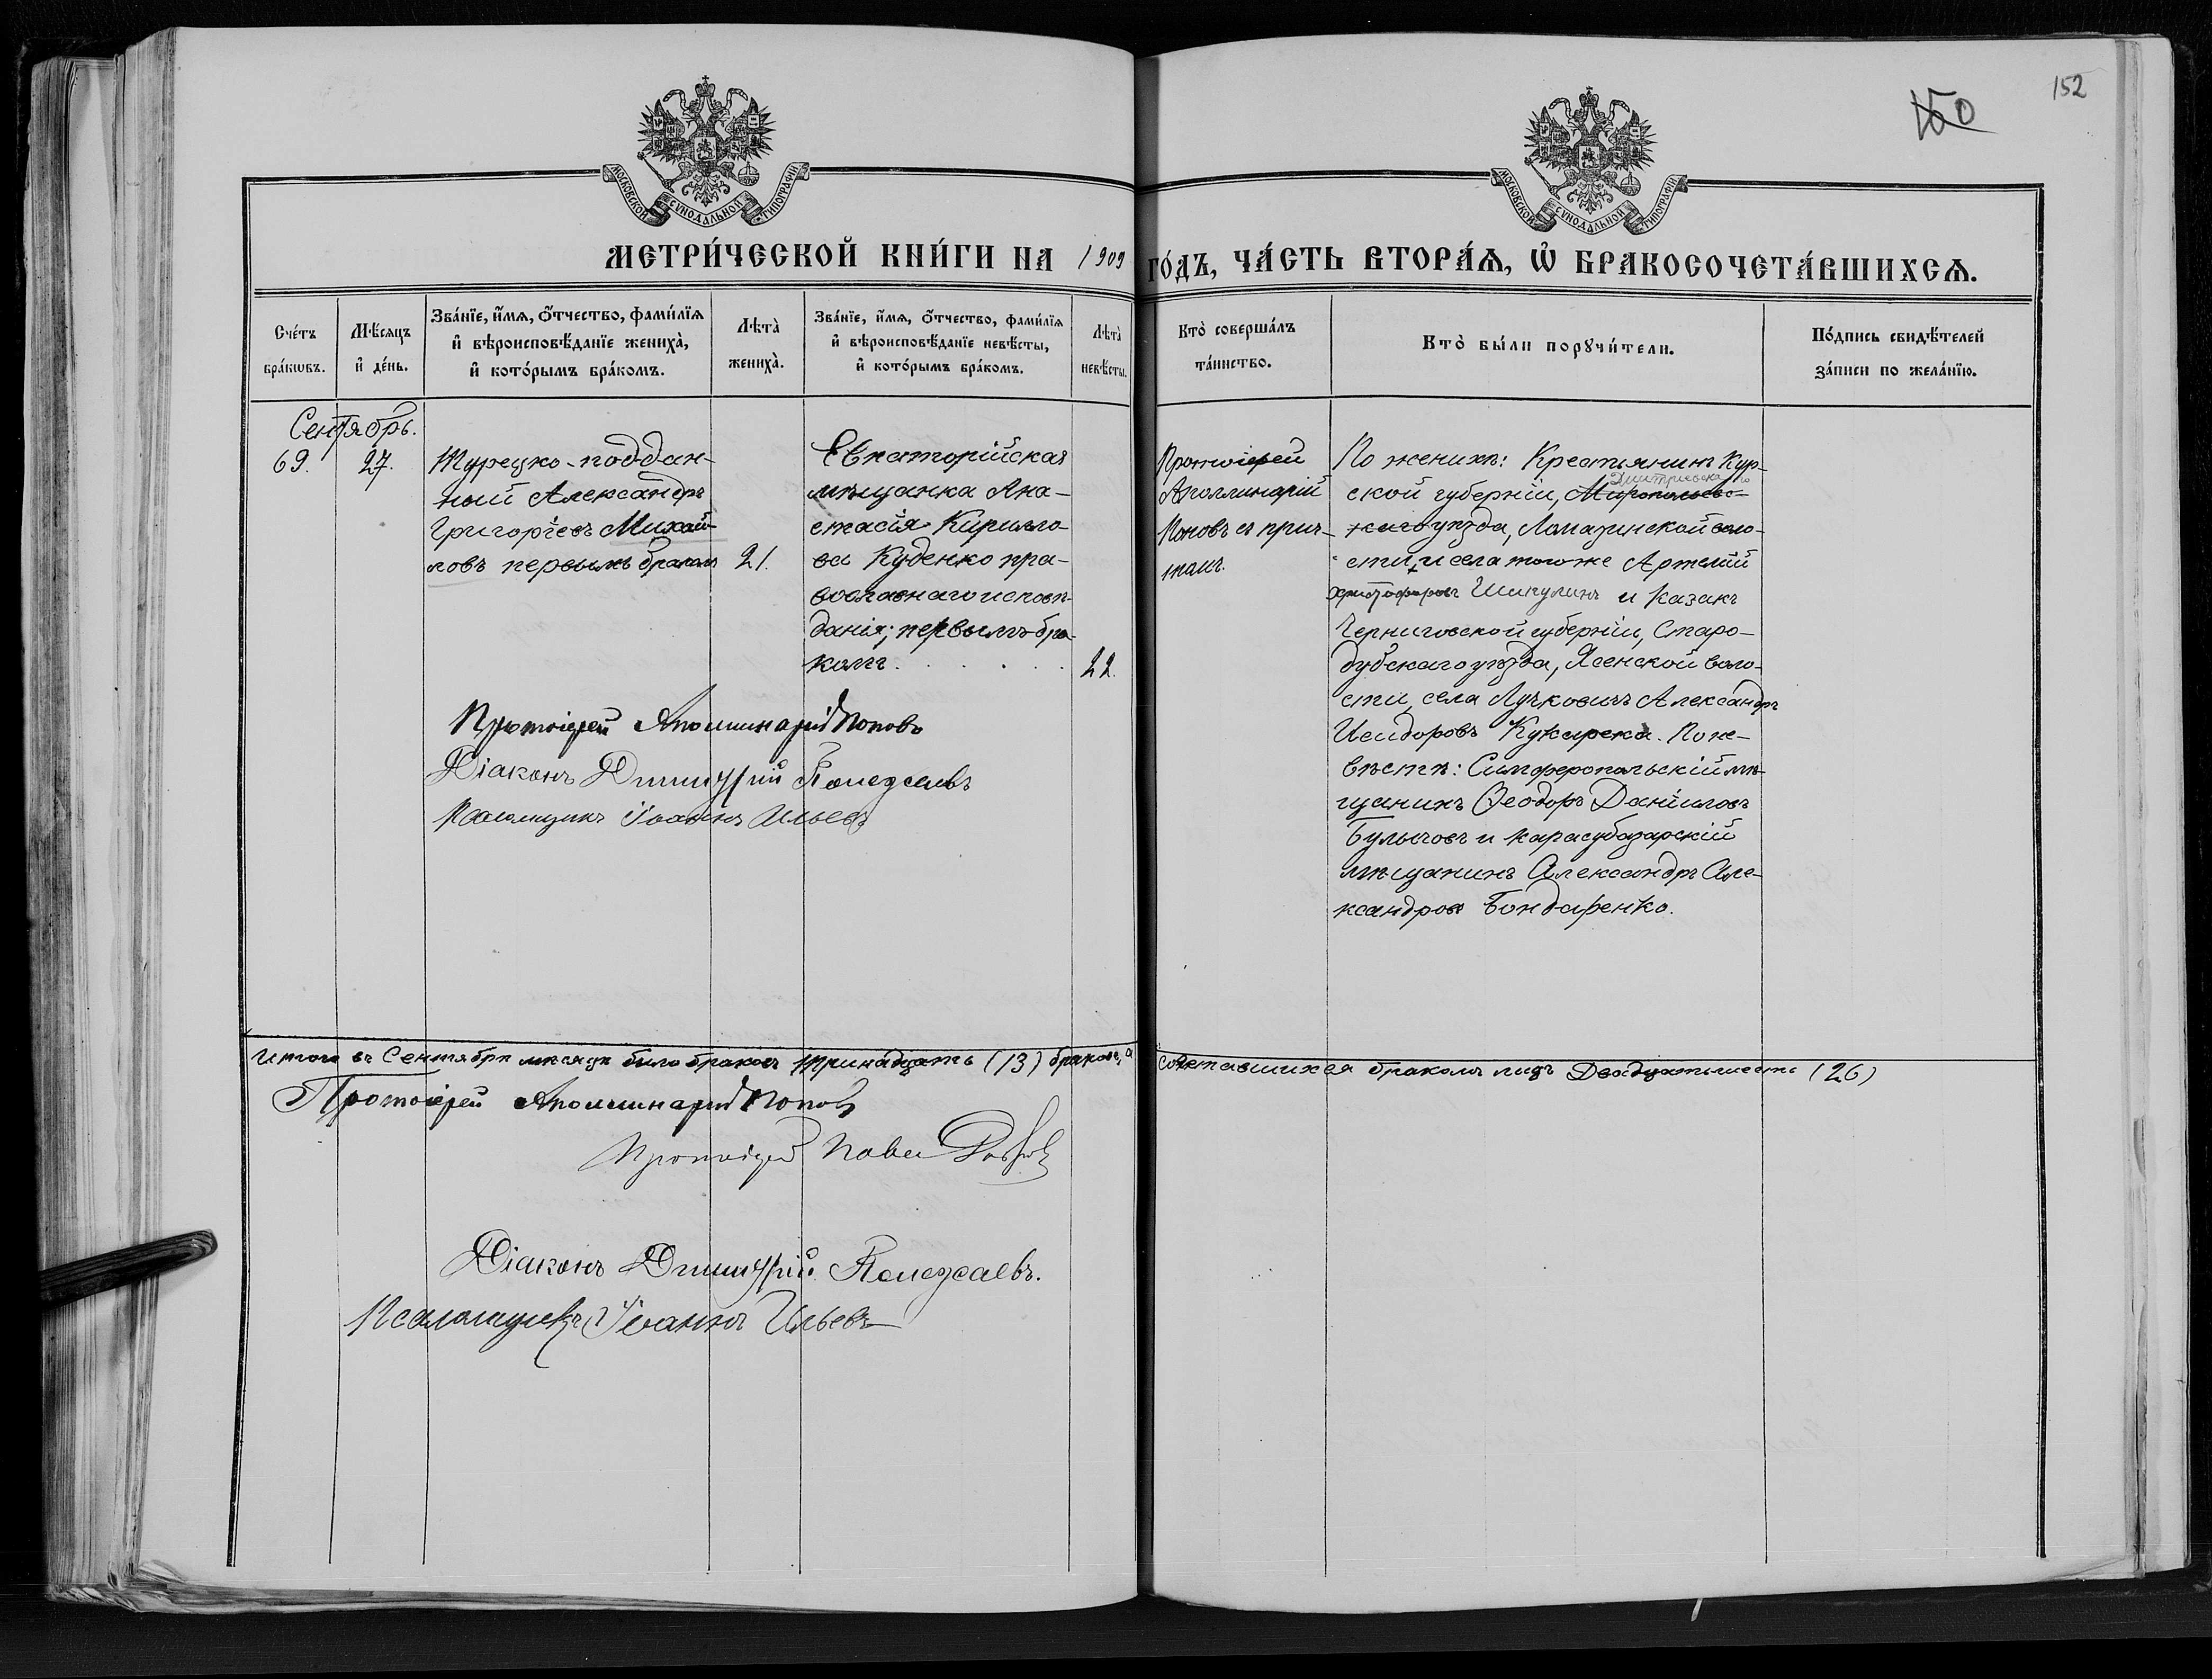 152
150
МОСКОВСКОЙ СѴНОДАЛЬНОЙ ТИПОГРАФІИ
МОСКОВСКОЙ СѴНОДАЛЬНОЙ ТИПОГРАФІИ
МЕТРИ́ЧЕСКОЙ КНИ́ГИ НА 1909 ГО́ДЪ, ЧА́СТЬ ВТОРА́Ѧ, Ѡ҆ БРАКОСОЧЕТА́ВШИХСѦ.
Сче́тъ
бра́кѡвъ.
Мѣ́сяцъ
и҆ де́нь.
Зва́нїе, и҆́мѧ, ѻ҆́тчество, фами́лїѧ
и҆ вѣроисповѣ́данїе жениха̀,
и҆ кото́рымъ бра́комъ.
Лѣта̀
жениха̀.
Зва́нїе, и҆́мѧ, ѻ҆́тчество, фами́лїѧ
и҆ вѣроисповѣ́данїе невѣ́сты,
и҆ кото́рымъ бра́комъ.
Лѣта̀
невѣ́сты.
Кто̀ соверша́лъ
та́инство.
Кто̀ бы́ли порꙋчи́тели.
По́дпись свидѣ́телей
за́писи по жела́нїю.
Сентябрь.
69.
27.
Турецко-поддан-
ный Александръ
Григоріевъ Михай-
ловъ первымъ бракомъ
21.
Евпаторійская
мѣщанка Ана-
стасія Кирилло-
ва Куденко пра-
вославнаго исповѣ-
данія; первымъ бра-
комъ.
22.
Протоіерей
Аполлинарій
Поповъ съ прич-
томъ.
По женихѣ: Крестьянинъ Кур-
Дмитріевскаго
ской губерніи, Миропольевс-
каго уѣзда, Ломазинской воло-
сти, и села того же Артемій
Христофоровъ Шикулинъ и Казакъ
Черниговской губерніи, Старо-
дубскаго уѣзда, Ясенской воло-
сти, села Лучковичъ Александръ
Исидоровъ Кужирека. По не-
вѣстѣ: Симферопольскій мѣ-
щанинъ Ѳеодоръ Даніиловъ
Булычовъ и Карасубазарскій
мѣщанинъ Александръ Але-
ксандровъ Бондаренко.
Протоіерей Аполлинарій Поповъ
Діаконъ Димитрій Полежаевъ
Псаломщикъ Іоаннъ Ильевъ
Итого въ Сентябрѣ мѣсяцѣ было браковъ тринадцать (13) браковъ, а сочетавшихся бракомъ лицъ двадцать шесть (26)
Протоіерей Аполлинарій Поповъ
Протоіерей Павел
Діаконъ Димитрій Полежаевъ.
Псаломщикъ Іоаннъ Ильевъ